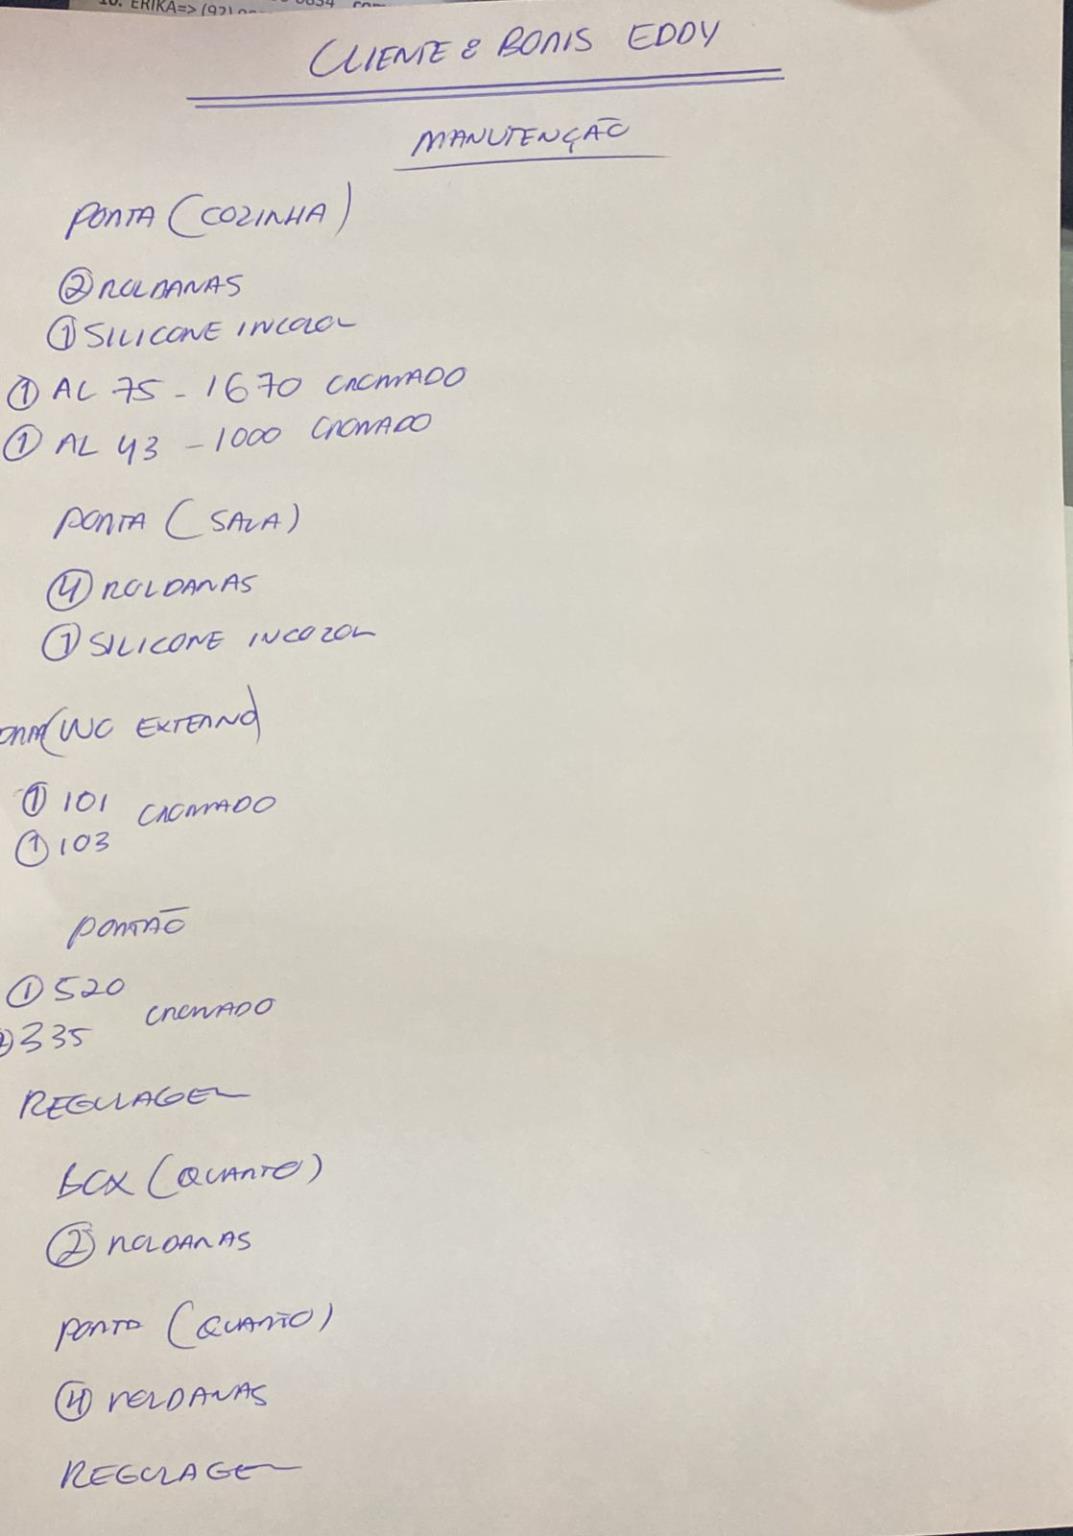 10. ERIKA=> (92)
CLIENTE: BORIS EDDY
MANUTENÇÃO
PORTA (COZINHA)
② ROLDANAS
① SILICONE INCOLOR
① AL 75 - 1670 CROMADO
① AL 43 - 1000 CROMADO
PORTA (SALA)
④ ROLDANAS
① SILICONE INCOLOR
(WC EXTERNO)
① 101 CROMADO
① 103
PORTÃO
① 520
CROMADO
335
REGULAGEM
BOX (QUARTO)
② ROLDANAS
PORTA (QUARTO)
④ ROLDANAS
REGULAGEM